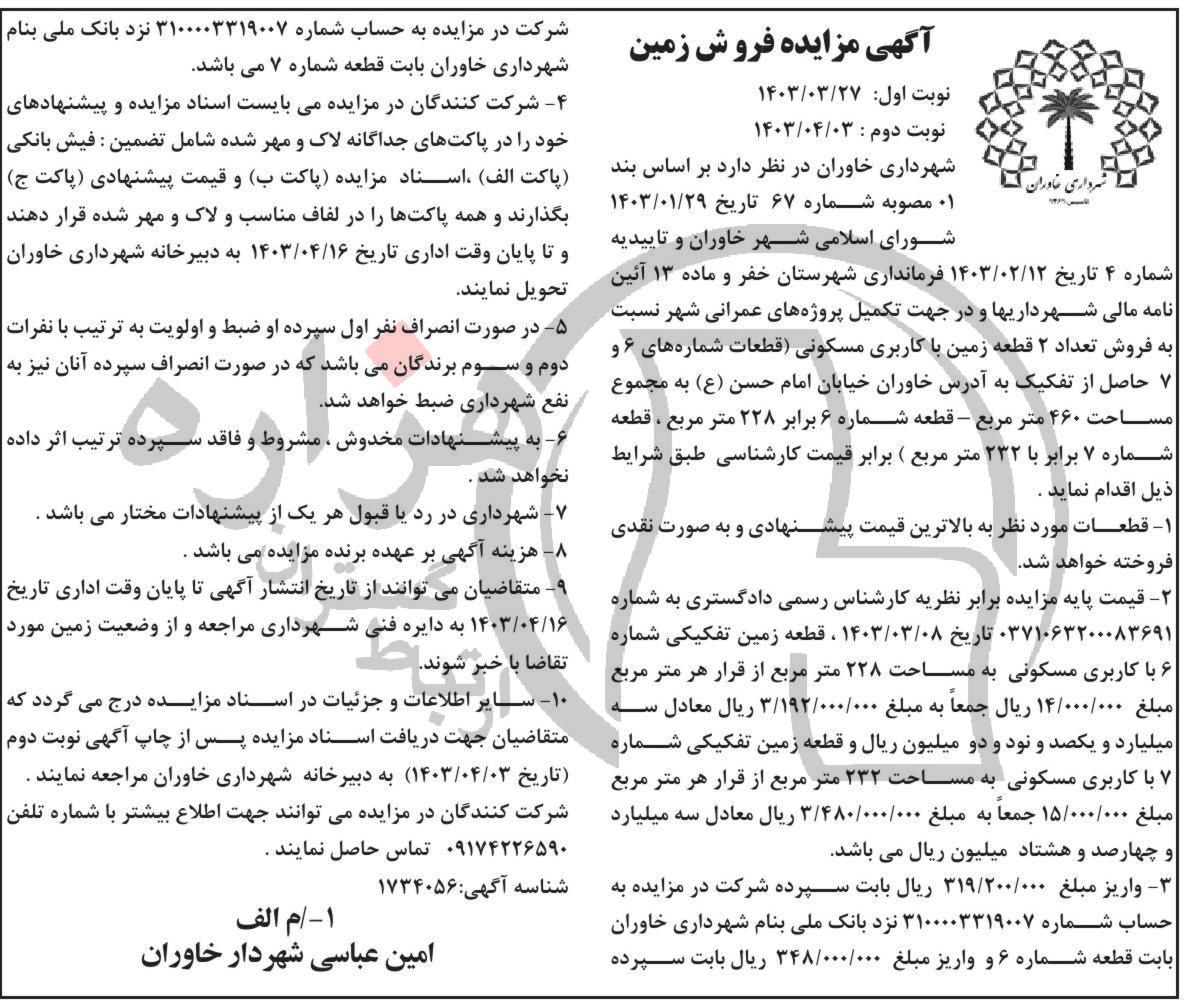 آگهی مزایده فروش زمین
نوبت اول: ۱۴۰۳/۰۳/۲۷
نوبت دوم : ۱۴۰۳/۰۴/۰۳
شهرداری خاوران
شهرداری خاوران در نظر دارد بر اساس بند
۰۱ مصوبه شماره ۶۷ تاریخ ۱۴۰۳/۰۱/۲۹
شورای اسلامی شهر خاوران و تاییدیه
شماره ۴ تاریخ ۱۴۰۳/۰۲/۱۲ فرمانداری شهرستان خفر و ماده ۱۳ آئین
نامه مالی شهرداریها و در جهت تکمیل پروژه‌های عمرانی شهر نسبت
به فروش تعداد ۲ قطعه زمین با کاربری مسکونی (قطعات شماره‌های ۶ و
۷ حاصل از تفکیک به آدرس خاوران خیابان امام حسن (ع) به مجموع
مساحت ۴۶۰ متر مربع – قطعه شماره ۶ برابر ۲۲۸ متر مربع ، قطعه
شماره ۷ برابر با ۲۳۲ متر مربع ) برابر قیمت کارشناسی طبق شرایط
ذیل اقدام نماید .
۱- قطعات مورد نظر به بالاترین قیمت پیشنهادی و به صورت نقدی
فروخته خواهد شد.
۲- قیمت پایه مزایده برابر نظریه کارشناس رسمی دادگستری به شماره
۰۳۷۱۰۶۳۲۰۰۰۸۳۶۹۱ تاریخ ۱۴۰۳/۰۳/۰۸ ، قطعه زمین تفکیکی شماره
۶ با کاربری مسکونی به مساحت ۲۲۸ متر مربع از قرار هر متر مربع
مبلغ ۱۴/۰۰۰/۰۰۰ ریال جمعاً به مبلغ ۳/۱۹۲/۰۰۰/۰۰۰ ریال معادل سه
میلیارد و یکصد و نود و دو میلیون ریال و قطعه زمین تفکیکی شماره
۷ با کاربری مسکونی به مساحت ۲۳۲ متر مربع از قرار هر متر مربع
مبلغ ۱۵/۰۰۰/۰۰۰ جمعاً به مبلغ ۳/۴۸۰/۰۰۰/۰۰۰ ریال معادل سه میلیارد
و چهارصد و هشتاد میلیون ریال می باشد.
۳- واریز مبلغ ۳۱۹/۲۰۰/۰۰۰ ریال بابت سپرده شرکت در مزایده به
حساب شماره ۳۱۰۰۰۰۳۳۱۹۰۰۷ نزد بانک ملی بنام شهرداری خاوران
بابت قطعه شماره ۶ و واریز مبلغ ۳۴۸/۰۰۰/۰۰۰ ریال بابت سپرده
شرکت در مزایده به حساب شماره ۳۱۰۰۰۰۳۳۱۹۰۰۷ نزد بانک ملی بنام
شهرداری خاوران بابت قطعه شماره ۷ می باشد.
۴- شرکت کنندگان در مزایده می بایست اسناد مزایده و پیشنهادهای
خود را در پاکت‌های جداگانه لاک و مهر شده شامل تضمین : فیش بانکی
(پاکت الف) ،اسناد مزایده (پاکت ب) و قیمت پیشنهادی (پاکت ج)
بگذارند و همه پاکت‌ها را در لفاف مناسب و لاک و مهر شده قرار دهند
و تا پایان وقت اداری تاریخ ۱۴۰۳/۰۴/۱۶ به دبیرخانه شهرداری خاوران
تحویل نمایند.
۵- در صورت انصراف نفر اول سپرده او ضبط و اولویت به ترتیب با نفرات
دوم و سوم برندگان می باشد که در صورت انصراف سپرده آنان نیز به
نفع شهرداری ضبط خواهد شد.
۶- به پیشنهادات مخدوش ، مشروط و فاقد سپرده ترتیب اثر داده
نخواهد شد .
۷- شهرداری در رد یا قبول هر یک از پیشنهادات مختار می باشد .
۸- هزینه آگهی بر عهده برنده مزایده می باشد .
۹- متقاضیان می توانند از تاریخ انتشار آگهی تا پایان وقت اداری تاریخ
۱۴۰۳/۰۴/۱۶ به دایره فنی شهرداری مراجعه و از وضعیت زمین مورد
تقاضا با خبر شوند.
۱۰- سایر اطلاعات و جزئیات در اسناد مزایده درج می گردد که
متقاضیان جهت دریافت اسناد مزایده پس از چاپ آگهی نوبت دوم
(تاریخ ۱۴۰۳/۰۴/۰۳) به دبیرخانه شهرداری خاوران مراجعه نمایند .
شرکت کنندگان در مزایده می توانند جهت اطلاع بیشتر با شماره تلفن
۰۹۱۷۴۲۲۶۵۹۰ تماس حاصل نمایند .
شناسه آگهی:۱۷۳۴۰۵۶
۱-/م الف
امین عباسی شهردار خاوران
هزاره
ارتباط
گستران